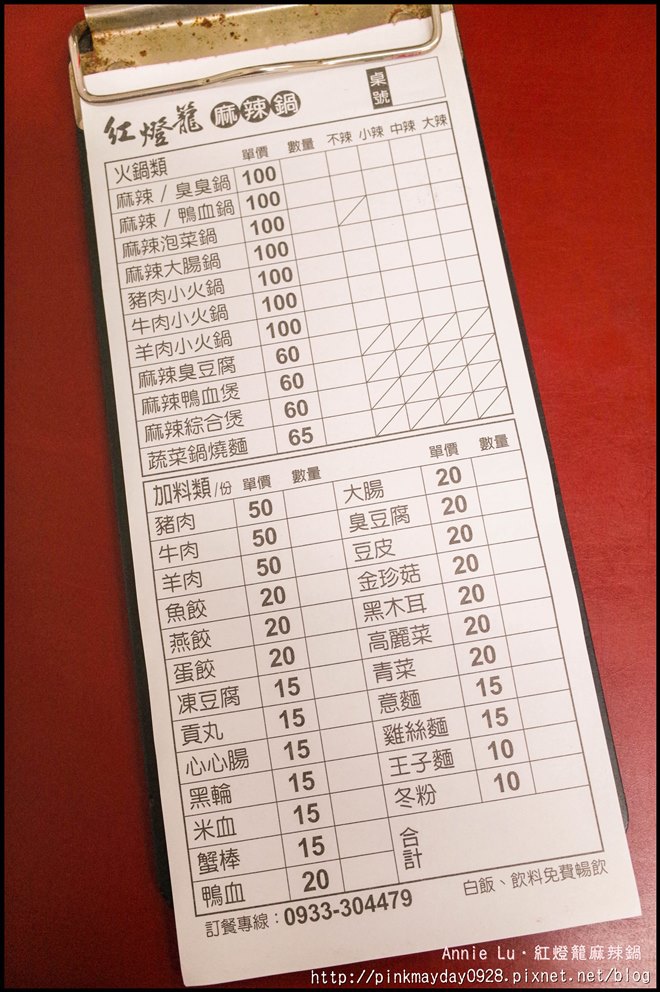 紅燈籠 麻辣鍋 桌號
火鍋類 單價 數量 不辣 小辣 中辣 大辣
麻辣 / 臭臭鍋 100
麻辣 / 鴨血鍋 100
麻辣泡菜鍋 100
麻辣大腸鍋 100
豬肉小火鍋 100
牛肉小火鍋 100
羊肉小火鍋 100
麻辣臭豆腐 60
麻辣鴨血煲 60
麻辣綜合煲 60
蔬菜鍋燒麵 65
加料類/份 單價 數量 單價 數量
豬肉 50 大腸 20
牛肉 50 臭豆腐 20
羊肉 50 豆皮 20
魚餃 20 金珍菇 20
燕餃 20 黑木耳 20
蛋餃 20 高麗菜 20
凍豆腐 15 青菜 20
貢丸 15 意麵 15
心心腸 15 雞絲麵 15
黑輪 15 王子麵 10
米血 15 冬粉 10
蟹棒 15 合計
鴨血 20
訂餐專線：0933-304479 白飯、飲料免費暢飲
Annie Lu · 紅燈籠麻辣鍋
http://pinkmayday0928.pixnet.net/blog